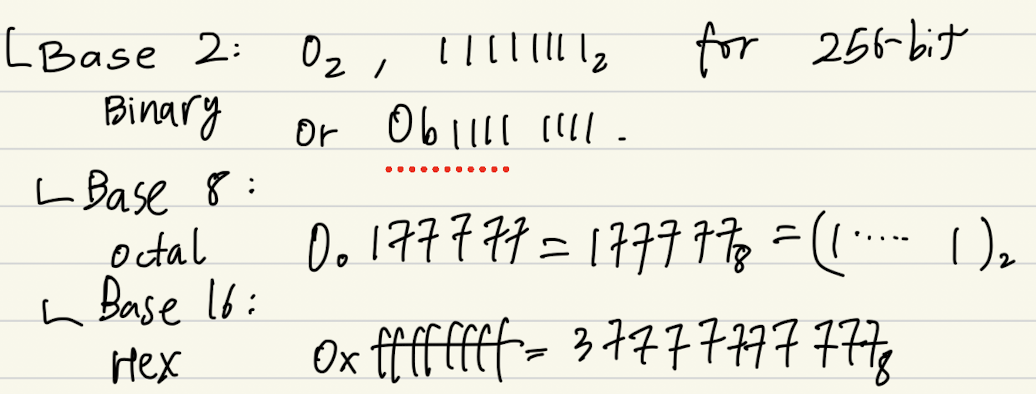 Base 2: 0₂, 11111111₂ for 256-bit
Binary or 0b1111 1111.
Base 8:
octal 0o177777 = 177777₈ = (1..... 1)₂
Base 16:
Hex 0xffffffff = 37777777777₈